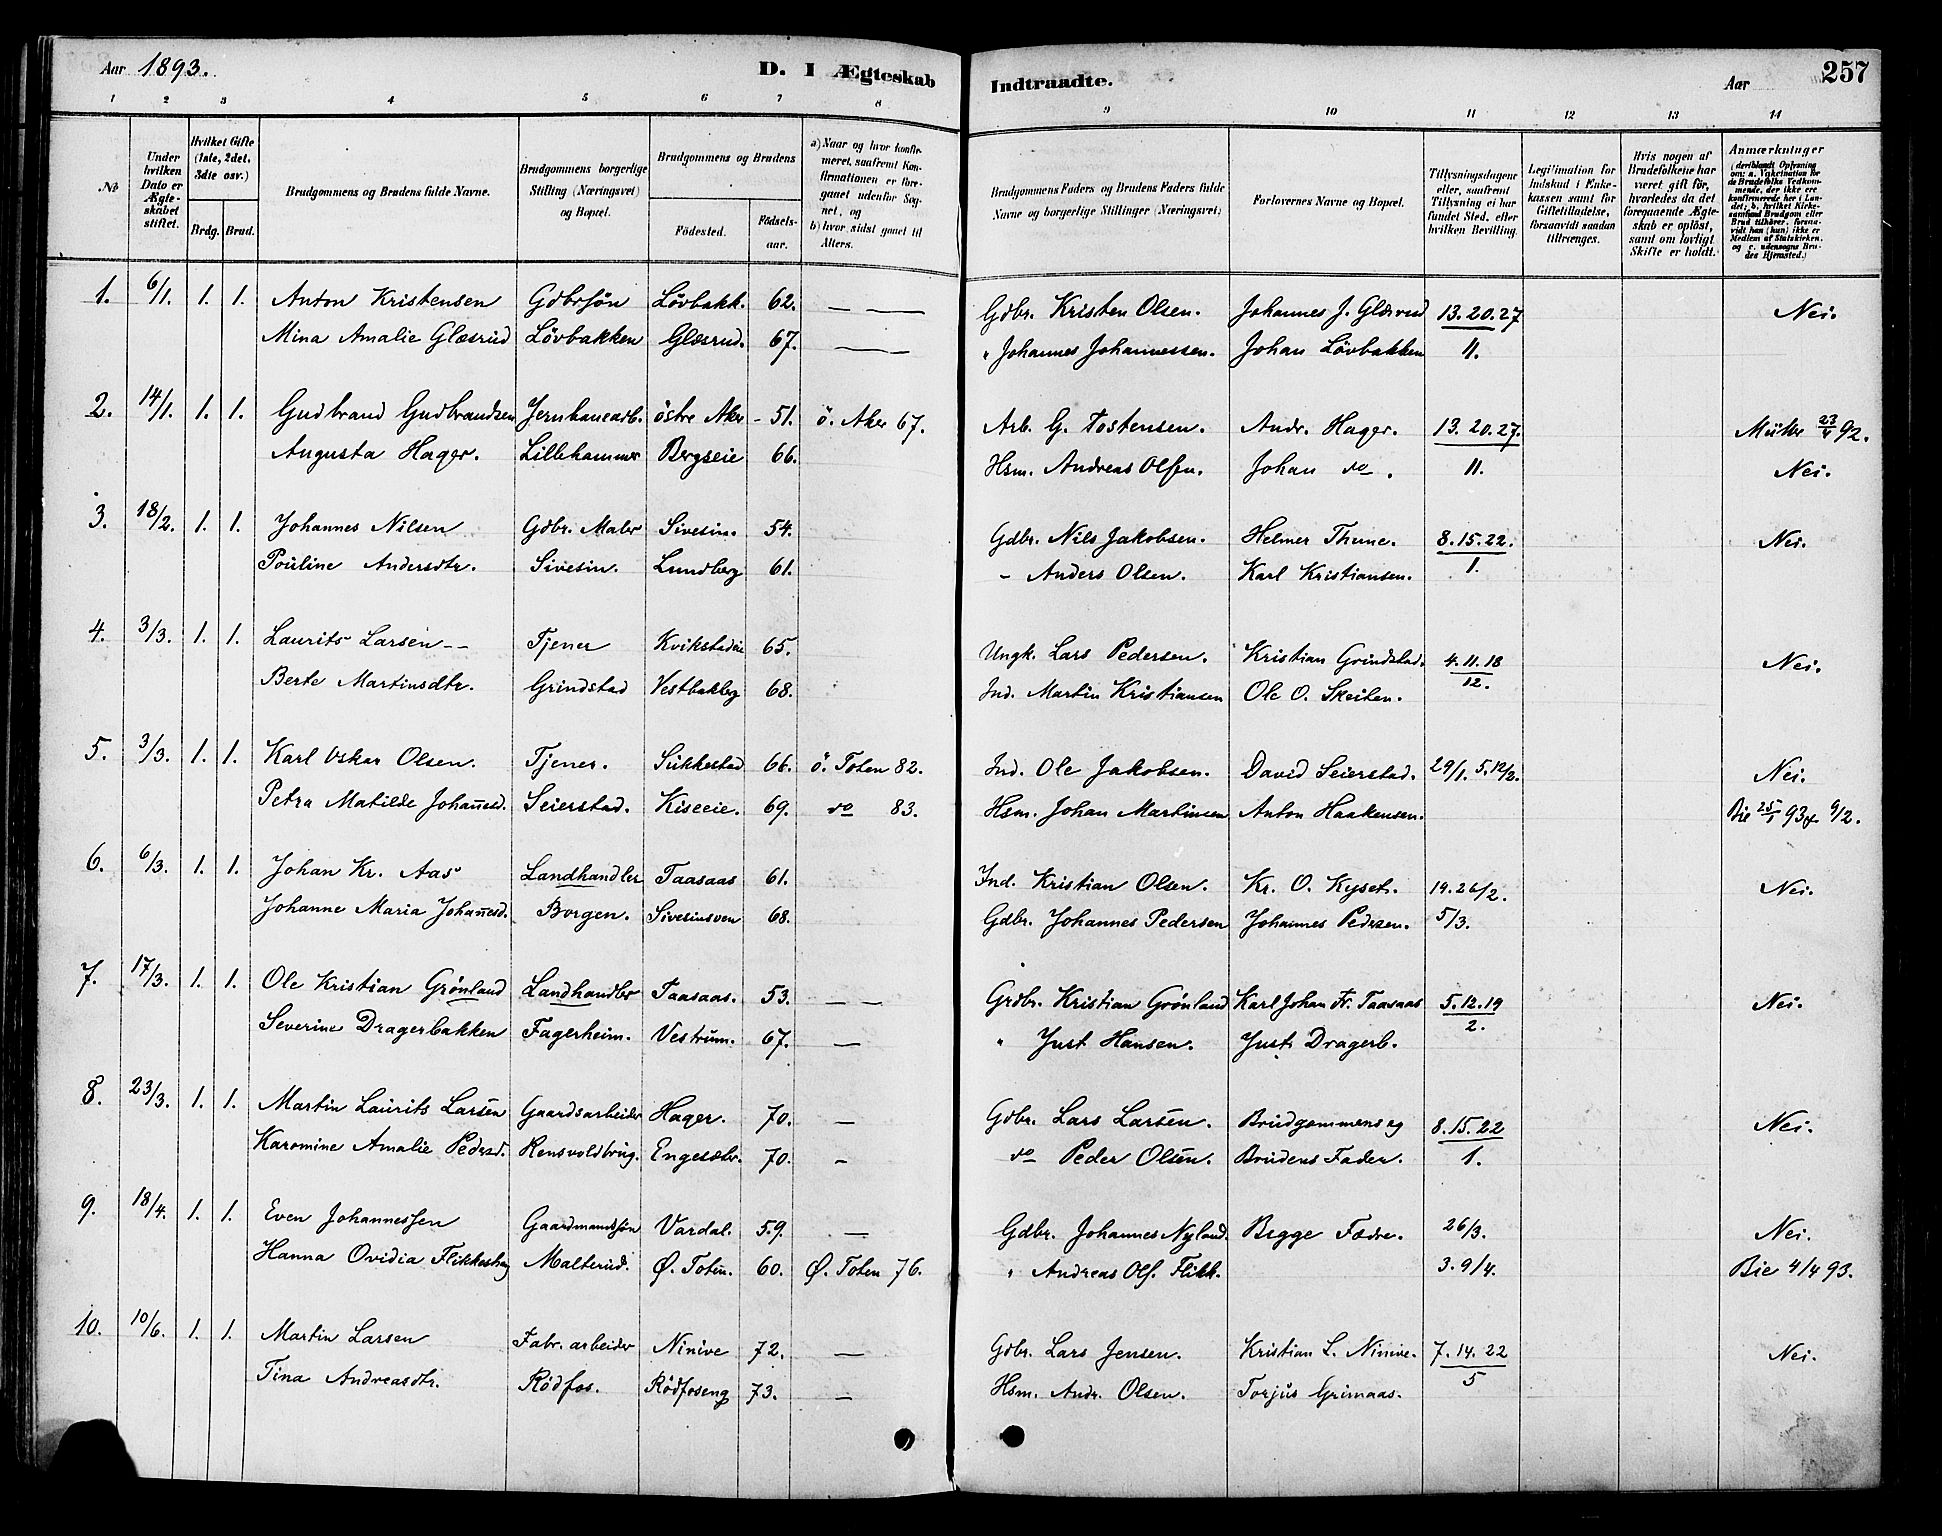 Aar 1893. D. I Ægteskab Indtraadte. Aar 257
1 2 3 4 5 6 7 8 9 10 11 12 13 14
No
Under hvilken Dato er Ægteskabet stiftet.
Hvilket Gifte (1ste, 2det, 3die osv.)
Brdg. Brud.
Brudgommens og Brudens fulde Navne.
Brudgommens borgerlige Stilling (Næringsvei) og Bopæl.
Brudgommens og Brudens
Fødested. Fødselsaar.
a) Naar og hvor konfirmeret, saafremt Konfirmationen er foregaaet udenfor Sognet, og
b) hvor sidst gaaet til Alters.
Brudgommens Faders og Brudens Faders fulde Navne og borgerlige Stillinger (Næringsvei)
Forlovernes Navne og Bopæl.
Tillysningsdagene eller, saafremt Tillysning ei har fundet Sted, efter hvilken Bevilling.
Legitimation for Indskud i Enkekassen samt for Giftetilladelse, forsaavidt saadan tiltrænges.
Hvis nogen af Brudefolkene har været gift før, hvorledes da det foregaaende Ægteskab er opløst, samt om lovligt Skifte er holdt.
Anmærkninger (deriblandt Oplysning om: a. Vakcination for de Brudefolks Vedkommende, der ikke ere konfirmerede her i Landet; b. hvilket Kirkesamfund Brudgom eller Brud tilhører, forsaavidt han (hun) ikke er Medlem af Statskirken, og c. udensogns Brudes Hjemsted.)
1. 6/1. 1. 1. Anton Kristensen Gdbrsøn Løvbakk. 62. — — Gdbr. Kristen Olsen. Johannes J. Glæsrud 13. 20. 27 Nei.
Mina Amalie Glæsrud Løvbakken Glæsrud. 67. — „ Johannes Johannessen. Johan Løvbakken 11.
2. 14/1. 1. 1. Gudbrand Gudbrandsen Jernbanearb. østre Aker 51. ö. Aker 67. Arb. G. Tostensen. Andr. Hager. 13. 20. 27. 23/4 92.
Augusta Hager. Lillehammer Bergseie 66. Hsm. Andreas Olsen. Johan do. 11. Nei.
3. 18/2. 1. 1. Johannes Nilsen Gdbr. Maler Sivesin. 54. Gdbr. Nils Jakobsen. Helmer Thune. 8. 15. 22. Nei.
Pouline Andersdtr. Sivesin. Lundberg 61. – Anders Olsen. Karl Kristiansen. 1.
4. 3/3. 1. 1. Laurits Larsen -- Tjener Kvikstadeie 65. Ungk. Lars Pedersen. Kristian Grindstad. 4. 11. 18 Nei.
Berte Martinsdtr. Grindstad Vestbakbg 68. Ind. Martin Kristiansen Ole O. Skeiten. 12.
5. 3/3. 1. 1. Karl Oskar Olsen. Tjener. Sukkestad 66. ö. Toten 82. Ind. Ole Jakobsen. David Seierstad. 29/1. 5. 12/2. Nei.
Petra Matilde Johañesd. Seierstad. Kiseeie. 69. do 83. Hsm. Johan Martinsen Anton Haakensen. Bie 25/1 93 9/2.
6. 6/3. 1. 1. Johan Kr. Aas Landhandler Taasaas 61. Ind. Kristian Olsen. Kr. O. Kyset. 19. 26/2. Nei.
Johanne Maria Johañesd. Borgen. Sivesinsven 68. Gdbr. Johannes Pedersen Johannes Pedersen. 5/3.
7. 17/3. 1. 1. Ole Kristian Grønland Landhandler Taasaas. 53. — — Grdbr. Kristian Grønland Karl Johan Fr. Taasaas 5. 12. 19 Nei.
Severine Dragerbakken Fagerheim. Vestrum. 67. — „ Just Hansen. Just Dragerb. 2.
8. 23/3. 1. 1. Martin Laurits Larsen Gaardsarbeider Hager. 70. — Gdbr. Lars Larsen. Brudgommens og 8. 15. 22 Nei.
Karomine Amalie Pedersd. Rensvoldbrug. Engesætr. 70. – do Peder Olsen. Brudens Fader. 1.
9. 18/4. 1. 1. Even Johannessen Gaardmandssøn Vardal. 59. — Gdbr. Johannes Nyland. Begge Fædre. 26/3. Nei.
Hanna Ovidia Flikkeshag Malterud. Ø. Toten. 60. Ø. Toten 76. „ Andreas Ols. Flikk. 3. 9/4. Bie 4/4 93.
10. 10/6. 1. 1. Martin Larsen Fabr. arbeider Ninive 72. — Gdbr. Lars Jensen. Kristian L. Ninive. 7. 14. 22 Nei.
Tina Andreasdtr. Rødfos. Rødfoseng 73. — Hsm. Andr. Olsen. Torjus Grimaas. 5